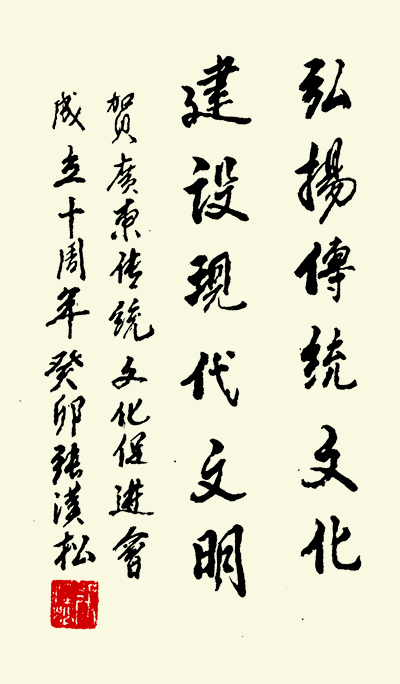 弘揚傳統文化
建设現代文明
賀廣東传统文化促進會
成立十周年癸卯張漢松